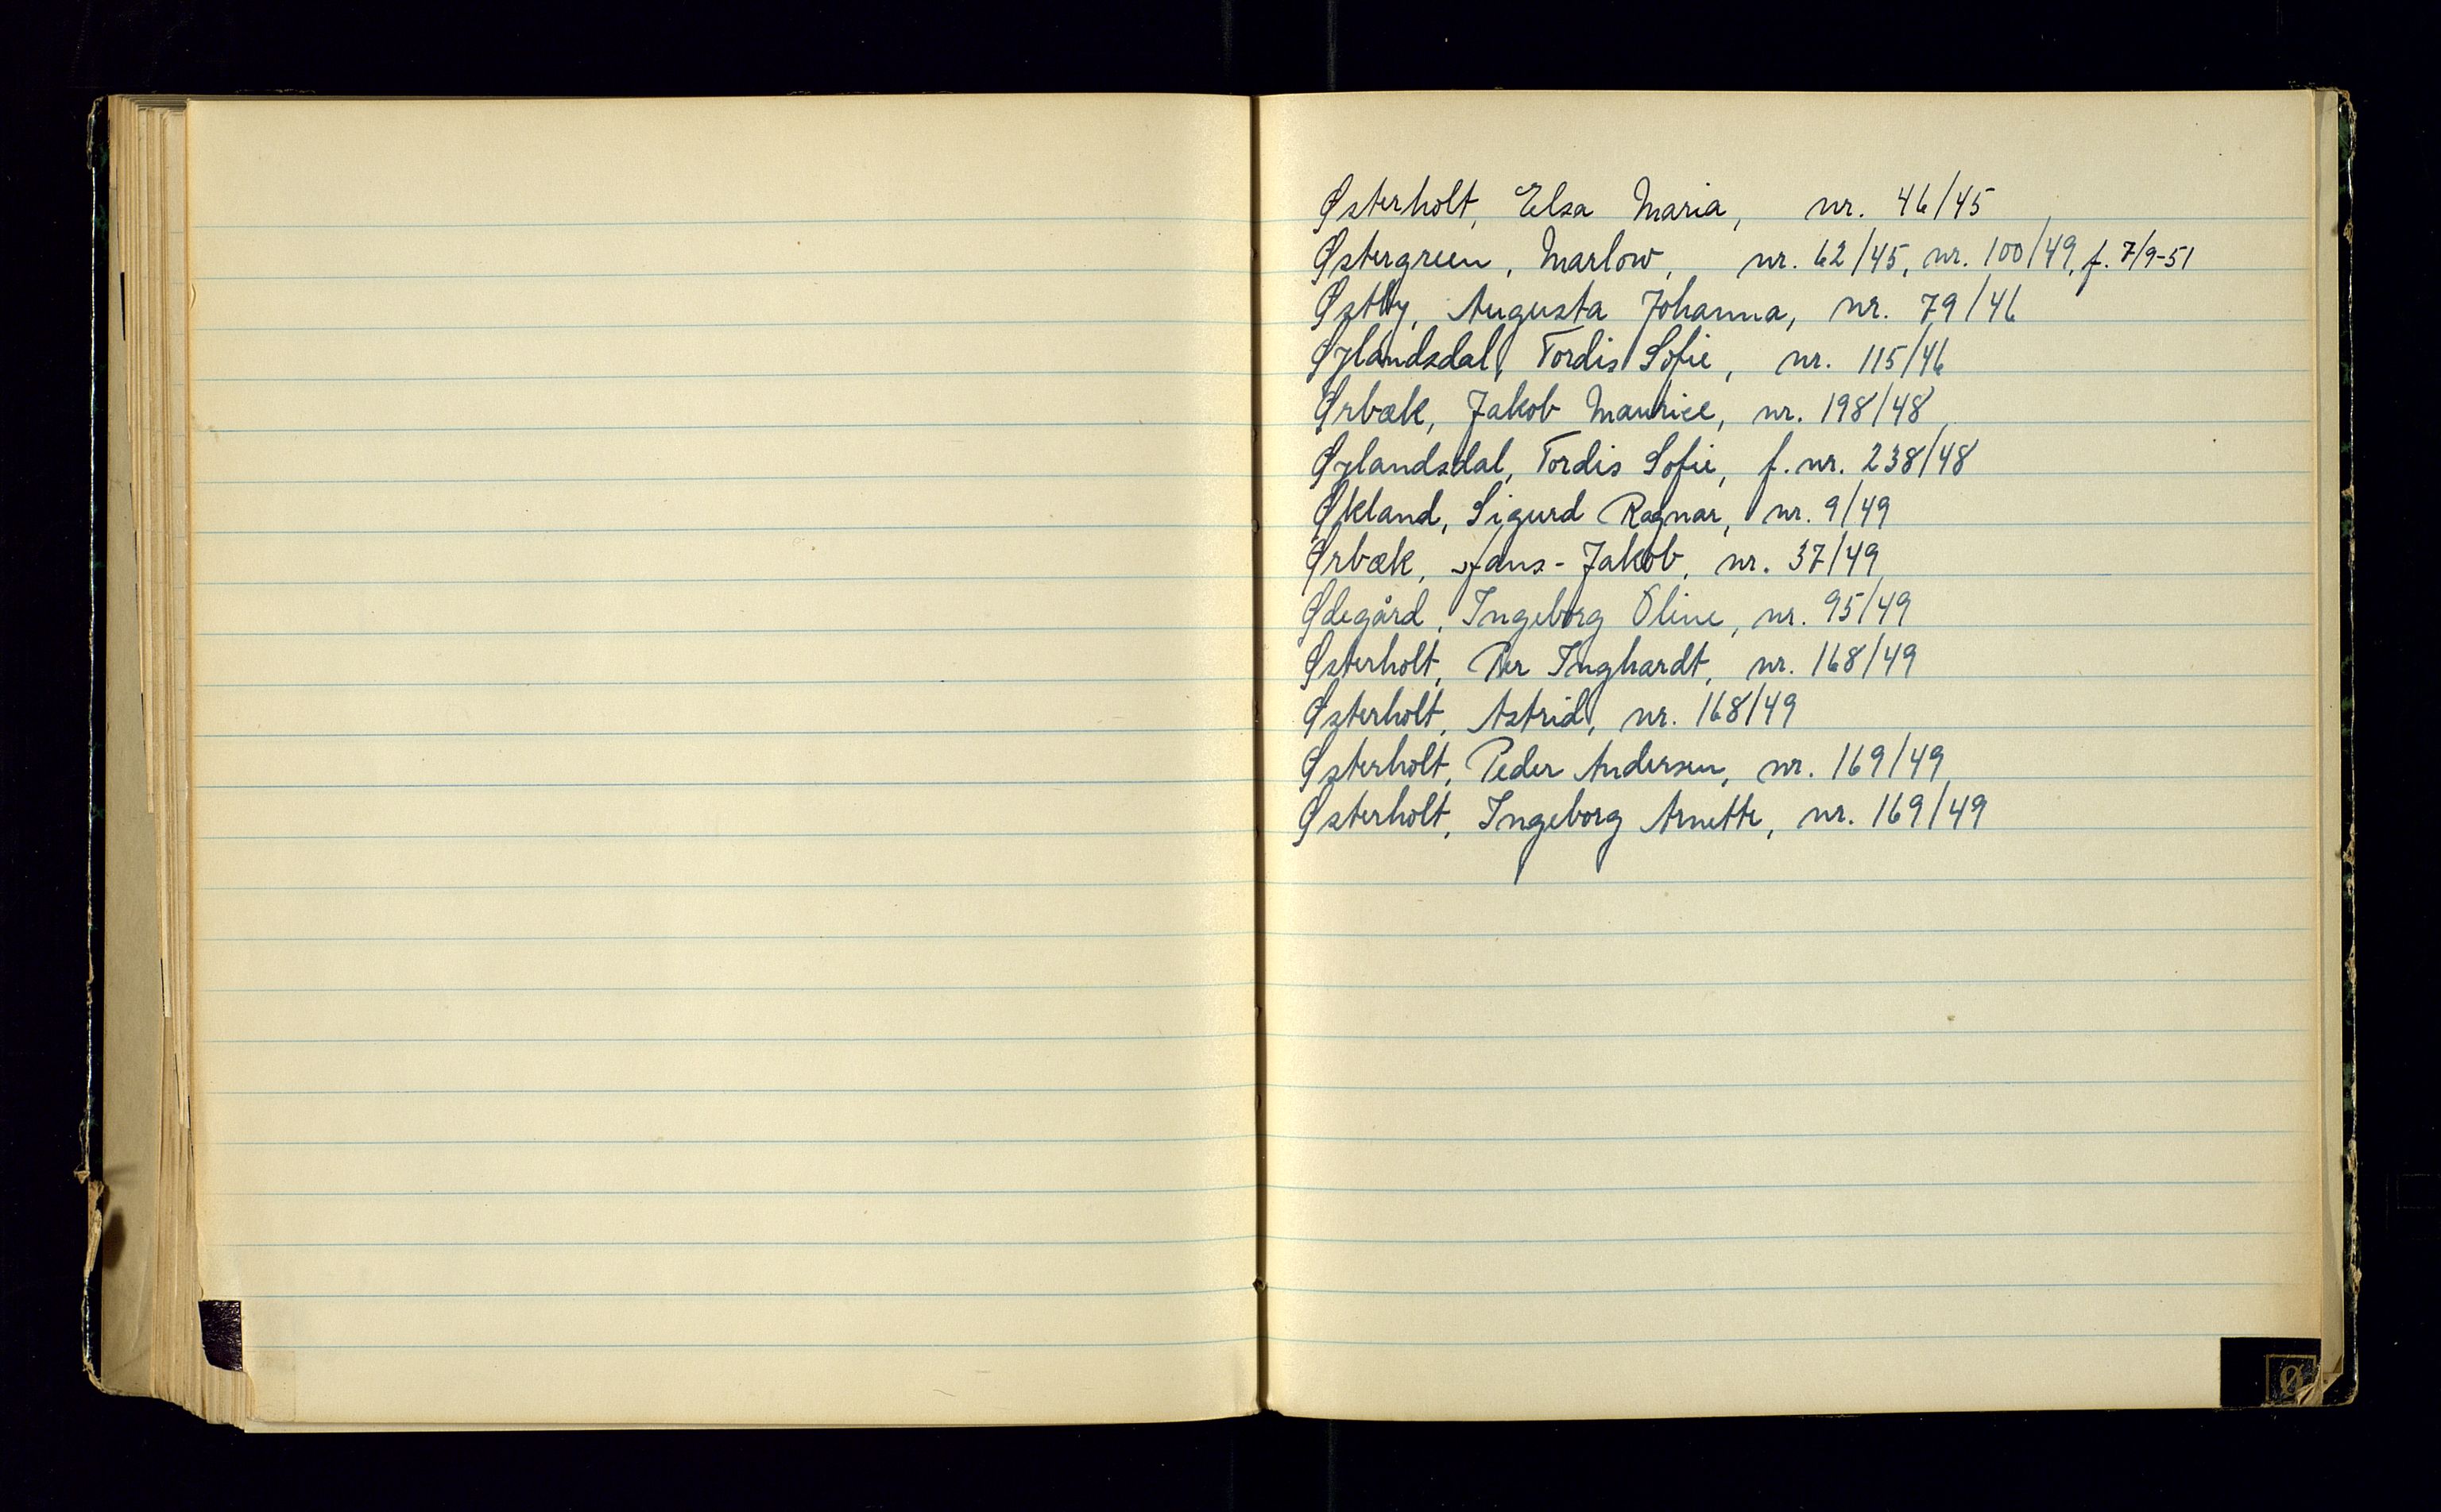 Østerholt, Elsa Maria, nr. 46/45
Østergreen, Marlow, nr. 62/45, nr. 100/49, f. 7/9-51
Østby, Augusta Johanna, nr. 79/46
Øylandsdal, Tordis Sofie, nr. 115/46
Ørbæk, Jakob Maurice, nr. 198/48
Øylandsdal, Tordis Sofie, f. nr. 238/48
Økland, Sigurd Ragnar, nr. 9/49
Ørbæk, Hans-Jakob, nr. 37/49
Ødegård, Ingeborg Oline, nr. 95/49
Østerholt, Per Inghardt, nr. 168/49
Østerholt, Astrid, nr. 168/49
Østerholt, Peder Andersen, nr. 169/49
Østerholt, Ingeborg Arnette, nr. 169/49
Ø